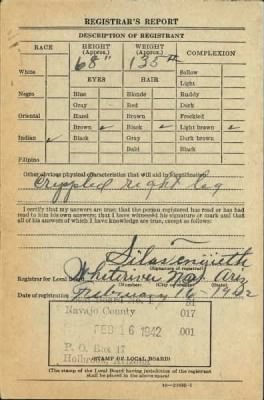 REGISTRAR'S REPORT
DESCRIPTION OF REGISTRANT
RACE HEIGHT (Approx.) WEIGHT (Approx.) COMPLEXION
68" 135#
White Sallow
EYES HAIR Light
Negro Blue Blonde Ruddy
Gray Red Dark
Oriental Hazel Brown Freckled
Brown ✓ Black ✓ Light brown ✓
Indian ✓ Black Gray Dark brown
Bald Black
Filipino
Other obvious physical characteristics that will aid in identification
Crippled right leg
I certify that my answers are true; that the person registered has read or has had
read to him his own answers; that I have witnessed his signature or mark and that
all of his answers of which I have knowledge are true, except as follows:
Silas
(Signature of registrar)
Registrar for Local Board Whiteriver Nav. Ariz
Date of registration February 16-1942
Navajo County 017
FEB 16 1942
P. O. Box 17
Holbrook, Arizona
(STAMP OF LOCAL BOARD)
(The stamp of the Local Board having jurisdiction of the registrant
shall be placed in the above space)